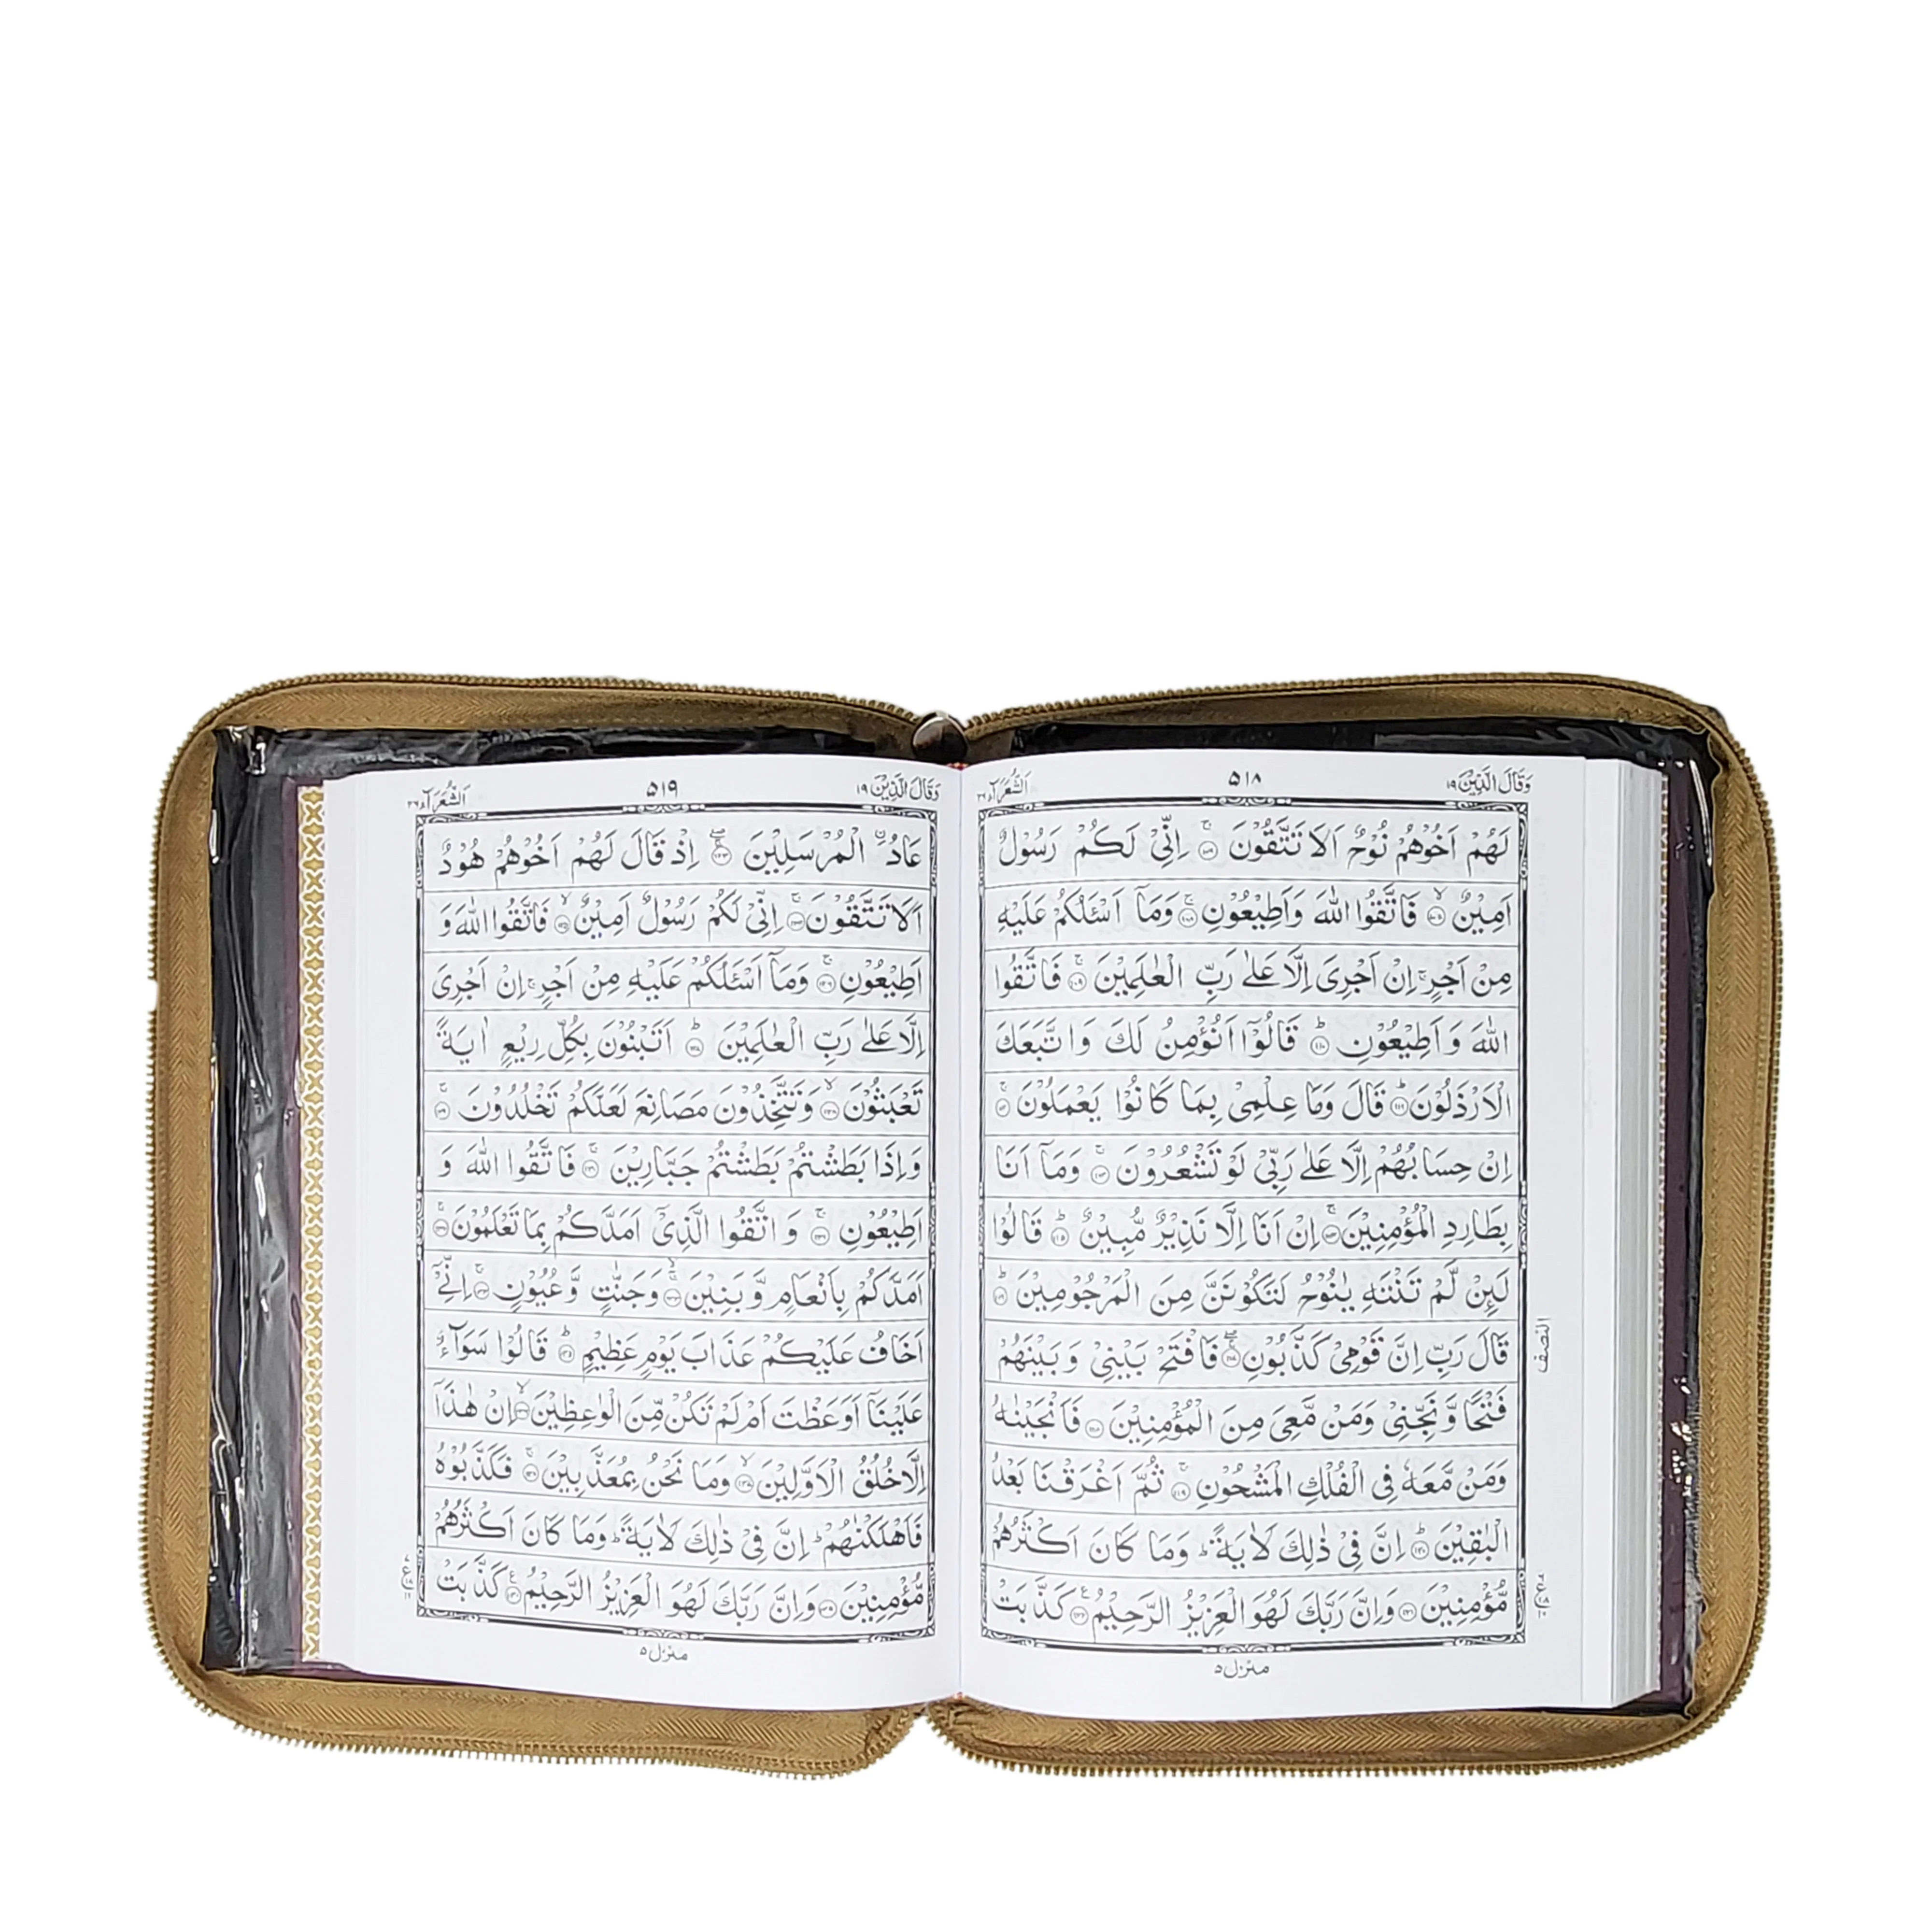 وَقَالَ الَّذِيْنَ ١٩
٥١٨
اَلشُّعَرَآء ٢٦
لَهُمْ اَخُوْهُمْ نُوْحٌ اَلَا تَتَّقُوْنَ ۚ‏﴿۱۰۶﴾ اِنِّىْ لَكُمْ رَسُوْلٌ
اَمِيْنٌ ۙ‏﴿۱۰۷﴾ فَاتَّقُوا اللّٰهَ وَاَطِيْعُوْنِ ۚ‏﴿۱۰۸﴾ وَمَاۤ اَسْـَٔلُكُمْ عَلَيْهِ
مِنْ اَجْرٍ ۚ اِنْ اَجْرِىَ اِلَّا عَلٰى رَبِّ الْعٰلَمِيْنَ ۚ‏﴿۱۰۹﴾ فَاتَّقُوا
اللّٰهَ وَاَطِيْعُوْنِ ؕ‏﴿۱۱۰﴾ قَالُوْۤا اَنُؤْمِنُ لَكَ وَاتَّبَعَكَ
الْاَرْذَلُوْنَ ؕ‏﴿۱۱۱﴾ قَالَ وَمَا عِلْمِىْ بِمَا كَانُوْا يَعْمَلُوْنَ ۚ‏﴿۱۱۲﴾
اِنْ حِسَابُهُمْ اِلَّا عَلٰى رَبِّىْ لَوْ تَشْعُرُوْنَ ۚ‏﴿۱۱۳﴾ وَمَاۤ اَنَا
بِطَارِدِ الْمُؤْمِنِيْنَ ۚ‏﴿۱۱۴﴾ اِنْ اَنَا اِلَّا نَذِيْرٌ مُّبِيْنٌ ؕ‏﴿۱۱۵﴾ قَالُوْا
لَٮِٕنْ لَّمْ تَنْتَهِ يٰنُوْحُ لَتَكُوْنَنَّ مِنَ الْمَرْجُوْمِيْنَ ؕ‏﴿۱۱۶﴾
قَالَ رَبِّ اِنَّ قَوْمِىْ كَذَّبُوْنِ ۖۚ‏﴿۱۱۷﴾ فَافْتَحْ بَيْنِىْ وَبَيْنَهُمْ
النصف
فَتْحًا وَّنَجِّنِىْ وَمَنْ مَّعِىَ مِنَ الْمُؤْمِنِيْنَ ‏﴿۱۱۸﴾ فَاَنْجَيْنٰهُ
وَمَنْ مَّعَهٗ فِى الْفُلْكِ الْمَشْحُوْنِ ۚ‏﴿۱۱۹﴾ ثُمَّ اَغْرَقْنَا بَعْدُ
الْبٰقِيْنَ ؕ‏﴿۱۲۰﴾ اِنَّ فِىْ ذٰلِكَ لَاٰيَةً ؕ وَمَا كَانَ اَكْثَرُهُمْ
مُّؤْمِنِيْنَ ‏﴿۱۲۱﴾ وَاِنَّ رَبَّكَ لَهُوَ الْعَزِيْزُ الرَّحِيْمُ ‏﴿۱۲۲﴾ كَذَّبَتْ
منزل ٥
وَقَالَ الَّذِيْنَ ١٩
٥١٩
اَلشُّعَرَآء ٢٦
عَادُ ۨ الْمُرْسَلِيْنَ ۖۚ‏﴿۱۲۳﴾ اِذْ قَالَ لَهُمْ اَخُوْهُمْ هُوْدٌ
اَلَا تَتَّقُوْنَ ۚ‏﴿۱۲۴﴾ اِنِّىْ لَكُمْ رَسُوْلٌ اَمِيْنٌ ۙ‏﴿۱۲۵﴾ فَاتَّقُوا اللّٰهَ وَ
اَطِيْعُوْنِ ۚ‏﴿۱۲۶﴾ وَمَاۤ اَسْـَٔلُكُمْ عَلَيْهِ مِنْ اَجْرٍ ۚ اِنْ اَجْرِىَ
اِلَّا عَلٰى رَبِّ الْعٰلَمِيْنَ ؕ‏﴿۱۲۷﴾ اَتَبْنُوْنَ بِكُلِّ رِيْعٍ اٰيَةً
تَعْبَثُوْنَ ۙ‏﴿۱۲۸﴾ وَتَتَّخِذُوْنَ مَصَانِعَ لَعَلَّكُمْ تَخْلُدُوْنَ ۚ‏﴿۱۲۹﴾
وَاِذَا بَطَشْتُمْ بَطَشْتُمْ جَبَّارِيْنَ ۚ‏﴿۱۳۰﴾ فَاتَّقُوا اللّٰهَ وَ
اَطِيْعُوْنِ ۚ‏﴿۱۳۱﴾ وَاتَّقُوا الَّذِىْۤ اَمَدَّكُمْ بِمَا تَعْلَمُوْنَ ۚ‏﴿۱۳۲﴾
اَمَدَّكُمْ بِاَنْعَامٍ وَّبَنِيْنَ ۙۚ‏﴿۱۳۳﴾ وَجَنّٰتٍ وَّعُيُوْنٍ ۚ‏﴿۱۳۴﴾ اِنِّىْۤ
اَخَافُ عَلَيْكُمْ عَذَابَ يَوْمٍ عَظِيْمٍ ؕ‏﴿۱۳۵﴾ قَالُوْا سَوَآءٌ
عَلَيْنَاۤ اَوَعَظْتَ اَمْ لَمْ تَكُنْ مِّنَ الْوٰعِظِيْنَ ۙ‏﴿۱۳۶﴾ اِنْ هٰذَاۤ
اِلَّا خُلُقُ الْاَوَّلِيْنَ ۙ‏﴿۱۳۷﴾ وَمَا نَحْنُ بِمُعَذَّبِيْنَ ۚ‏﴿۱۳۸﴾ فَكَذَّبُوْهُ
فَاَهْلَكْنٰهُمْ ؕ اِنَّ فِىْ ذٰلِكَ لَاٰيَةً ؕ وَمَا كَانَ اَكْثَرُهُمْ
مُّؤْمِنِيْنَ ‏﴿۱۳۹﴾ وَاِنَّ رَبَّكَ لَهُوَ الْعَزِيْزُ الرَّحِيْمُ ‏﴿۱۴۰﴾ كَذَّبَتْ
منزل ٥